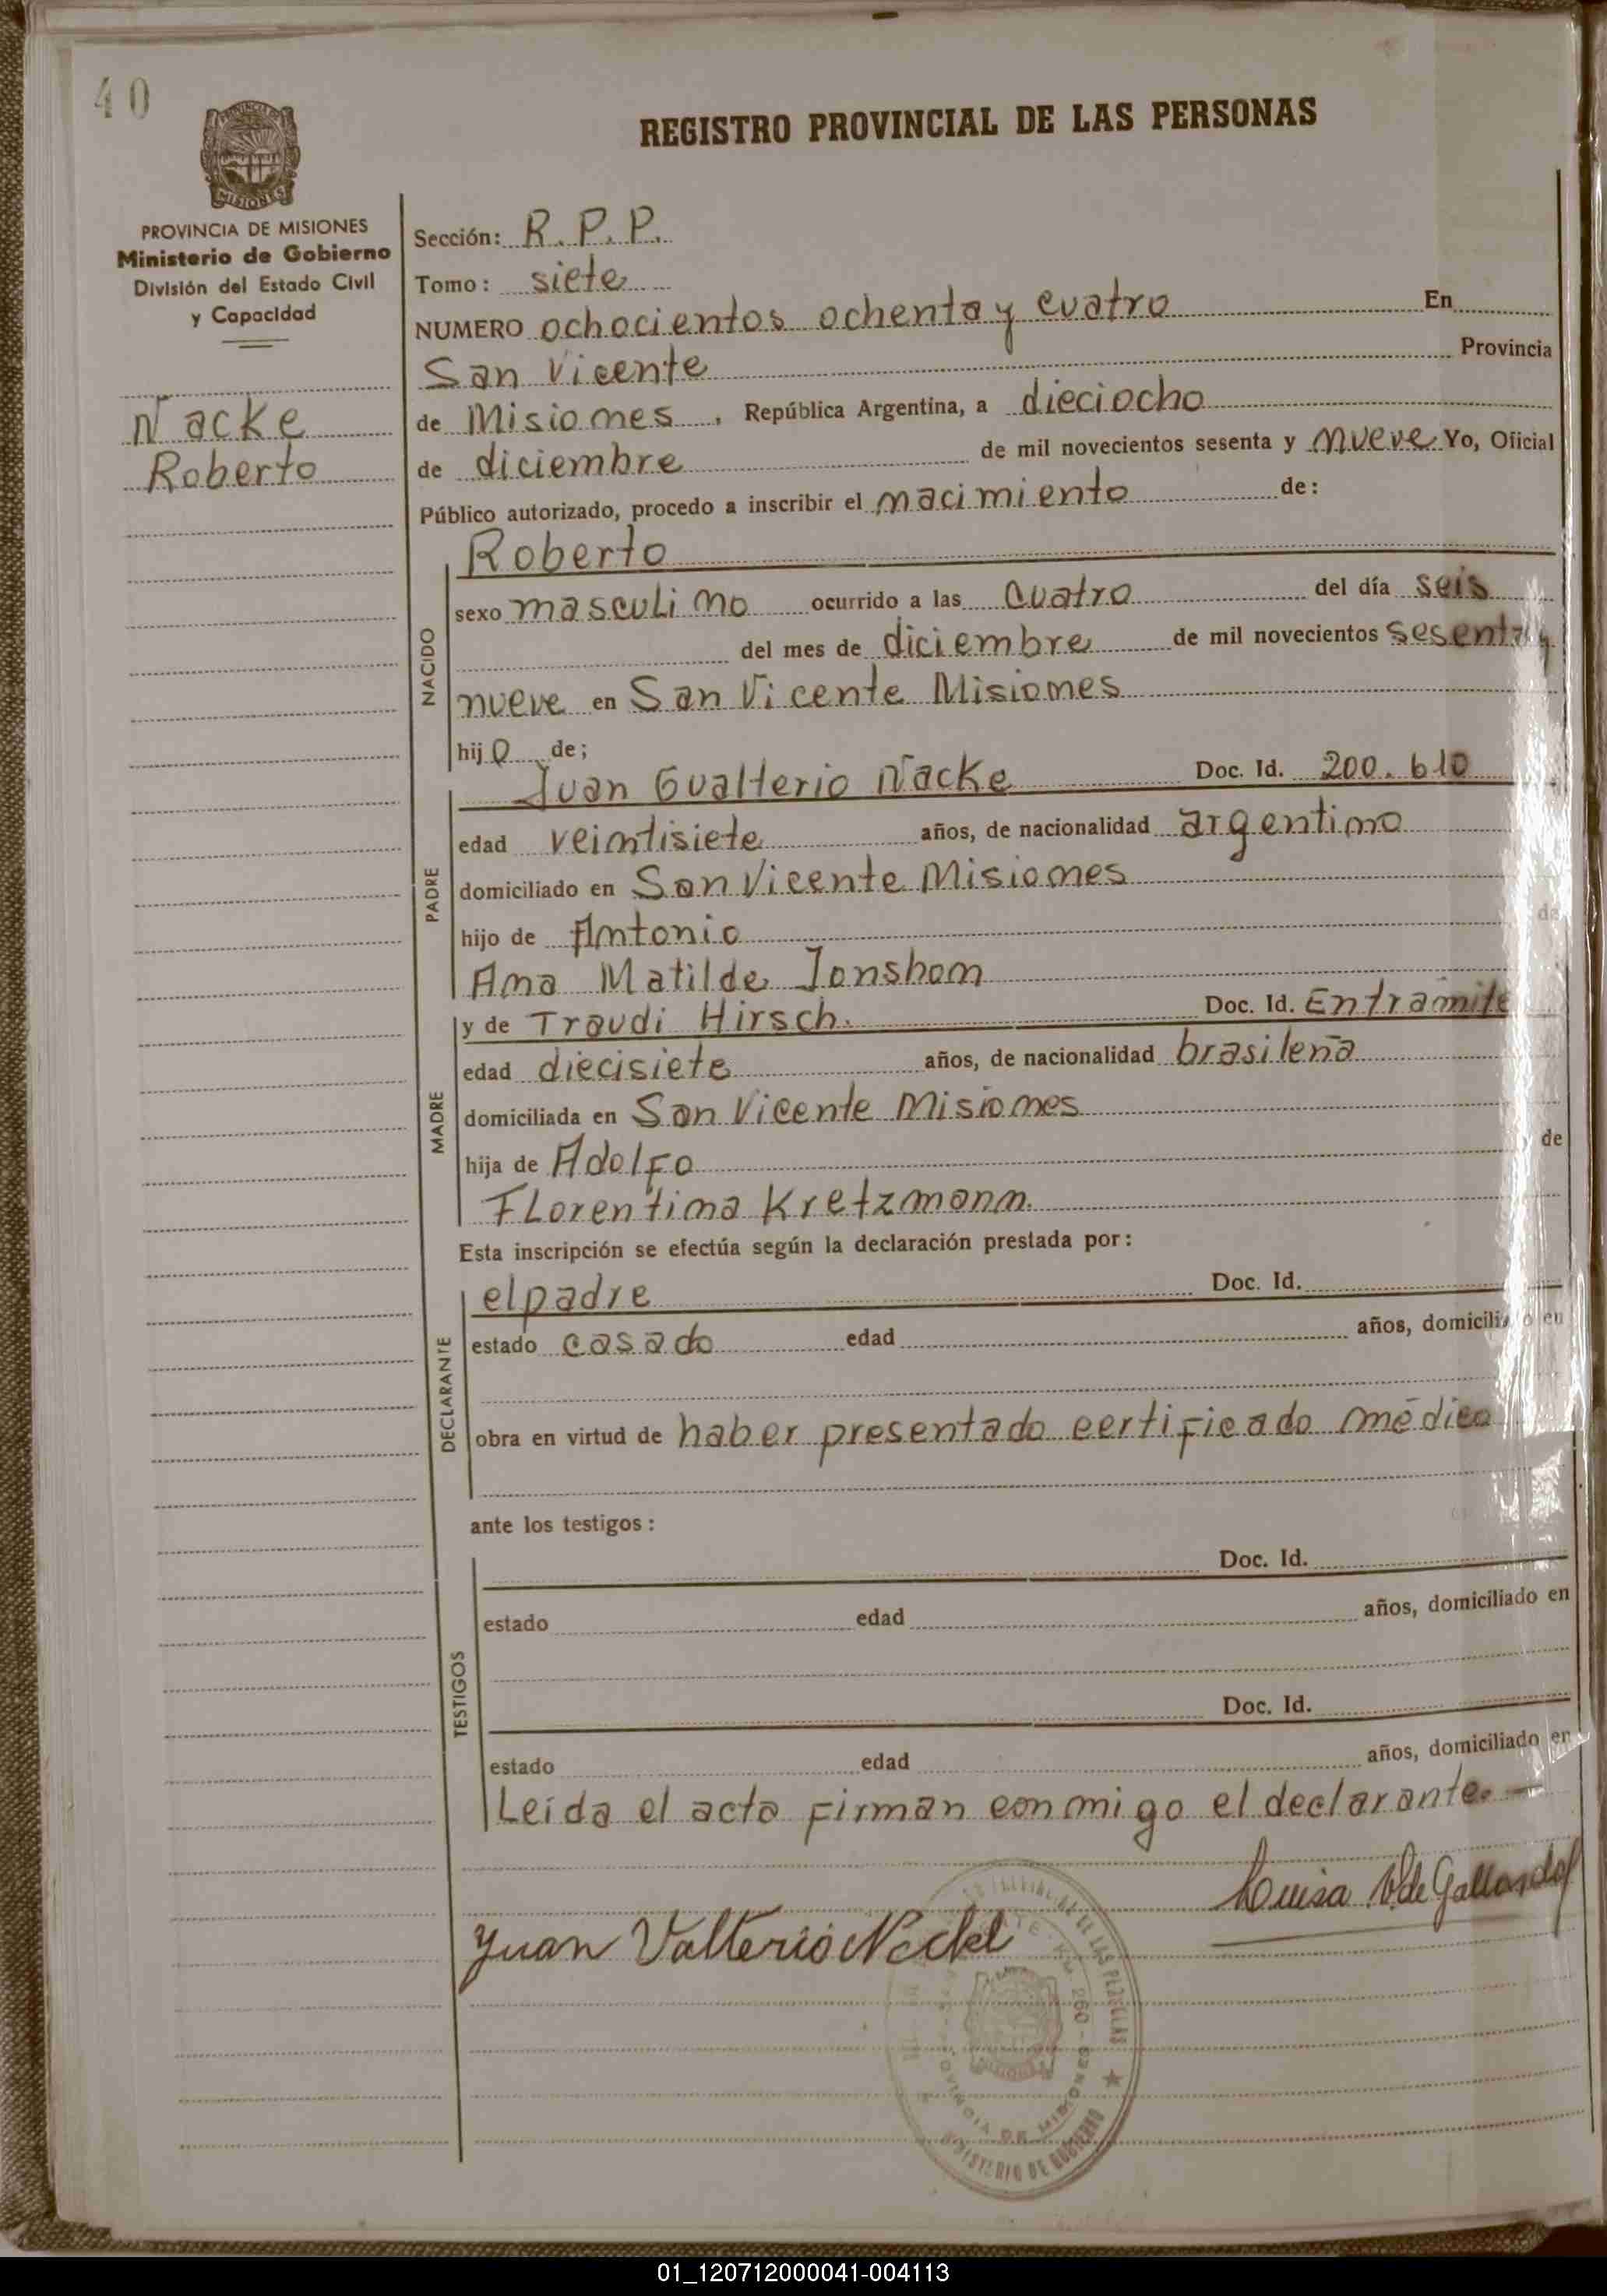 40
REGISTRO PROVINCIAL DE LAS PERSONAS
PROVINCIA DE MISIONES
Ministerio de Gobierno
División del Estado Civil
y Capacidad
Nacke
Roberto
Sección: R. P. P.
Tomo: siete
NUMERO ochocientos ochenta y cuatro En
San Vicente Provincia
de Misiones, República Argentina, a dieciocho
de diciembre de mil novecientos sesenta y nueve Yo, Oficial
Público autorizado, procedo a inscribir el nacimiento de:
Roberto
NACIDO
sexo masculino ocurrido a las cuatro del día seis
del mes de diciembre de mil novecientos sesenta y
nueve en San Vicente Misiones
hijo de;
Juan Gualterio Nacke Doc. Id. 200.610
PADRE
edad veintisiete años, de nacionalidad argentino
domiciliado en San Vicente Misiones
hijo de Antonio de
Ana Matilde Jonshon
y de Traudi Hirsch. Doc. Id. En tramite
MADRE
edad diecisiete años, de nacionalidad brasileña
domiciliada en San Vicente Misiones
hija de Adolfo y de
Florentina Kretzmann.
Esta inscripción se efectúa según la declaración prestada por:
el padre Doc. Id.
DECLARANTE
estado casado edad años, domiciliado en
obra en virtud de haber presentado certificado médico
ante los testigos:
Doc. Id.
TESTIGOS
estado edad años, domiciliado en
Doc. Id.
estado edad años, domiciliado en
Leída el acta firman conmigo el declarante. —
Luisa V. de Gallardo
Juan Valterio
PROVINCIA DE MISIONES
MINISTERIO DE GOBIERNO
01_120712000041-004113